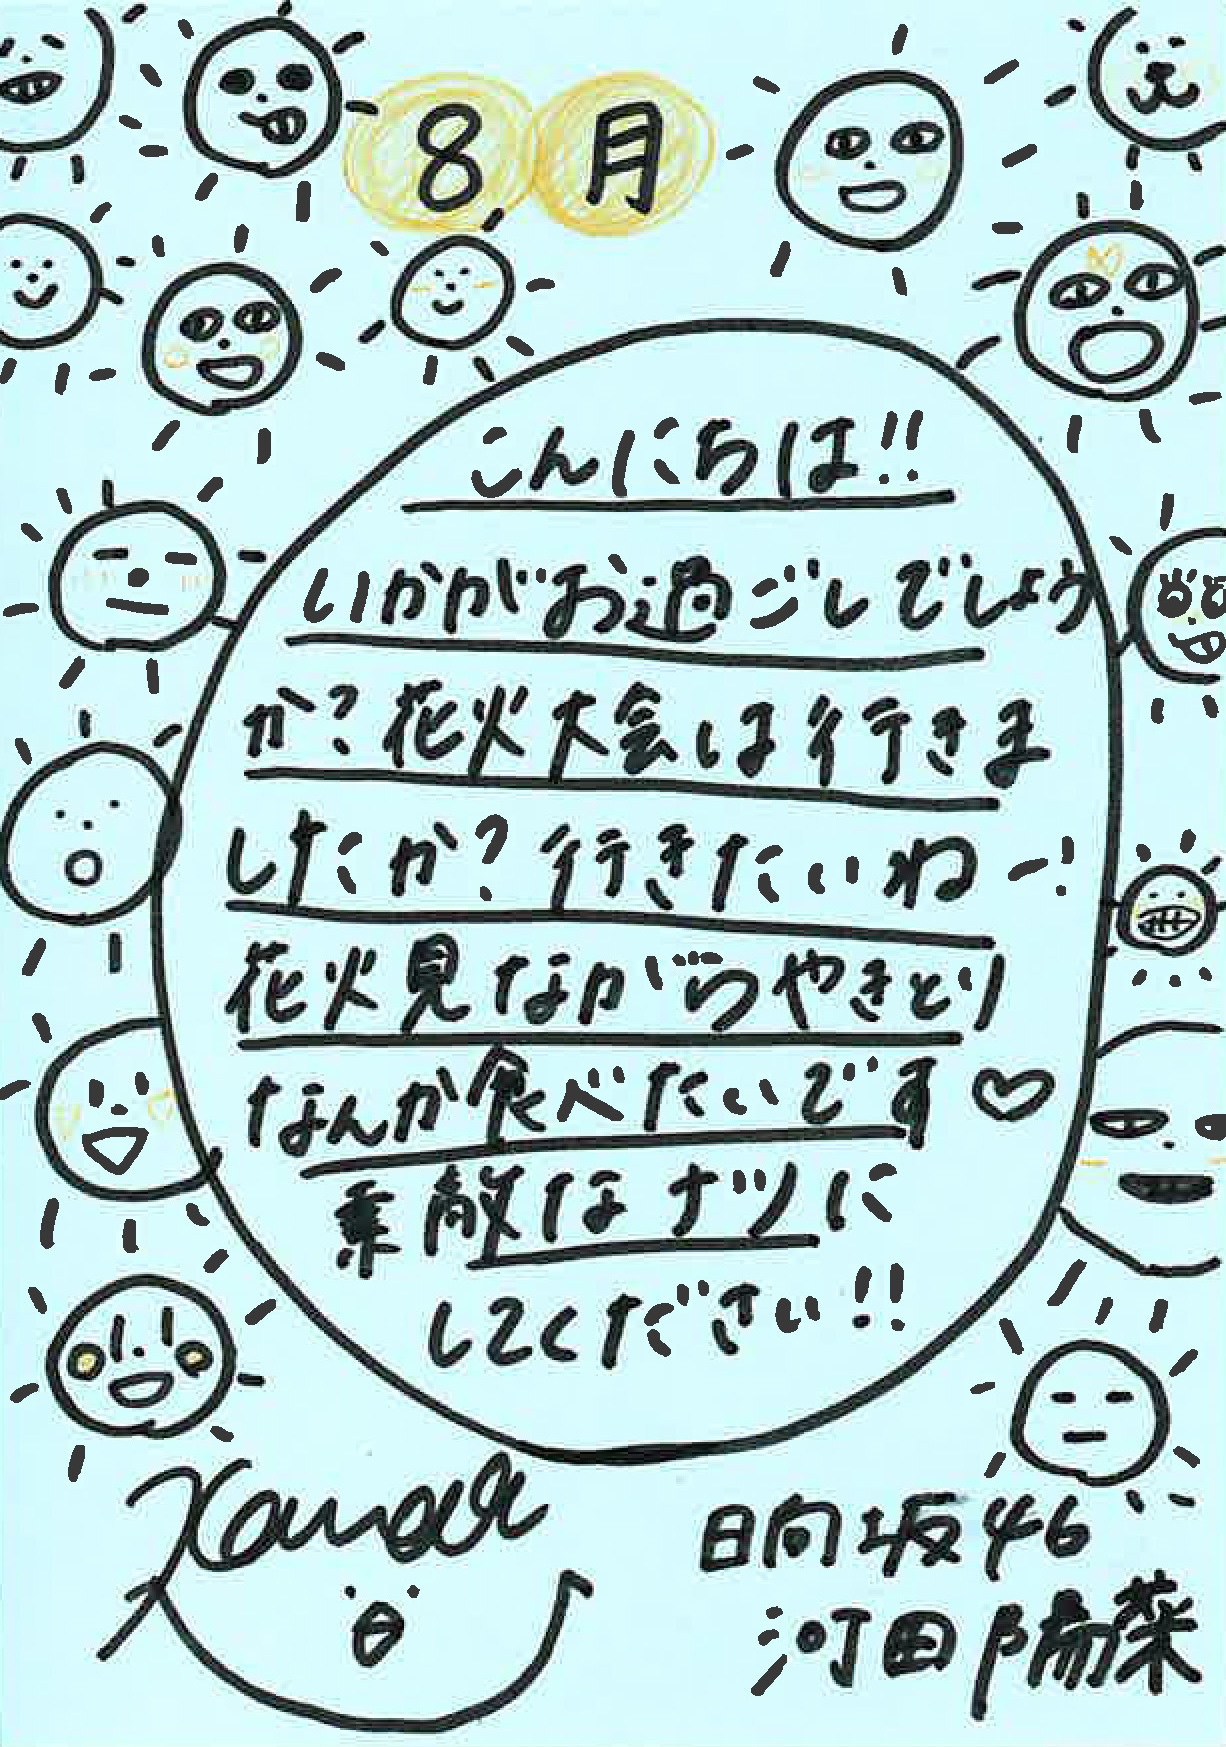 8月
こんにちは!!
いかがお過ごしでしょう
か?花火大会は行きま
したか?行きたいねー!
花火見ながらやきとり
なんか食べたいです♡
素敵なナツに
してください!!
Kawada
日向坂46
河田陽菜